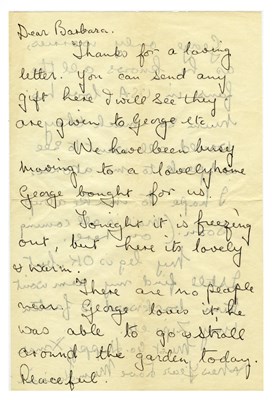 Dear Barbara.
Thanks for a loving
letter. You can send any
gift here I will see they
are given to George etc.
We have been busy
moving to a lovely home
George bought for us.
Tonight it is freezing
out, but here its lovely
& warm.
There are no people
near George loves it, he
was able to go & stroll
around the garden today.
Peaceful.